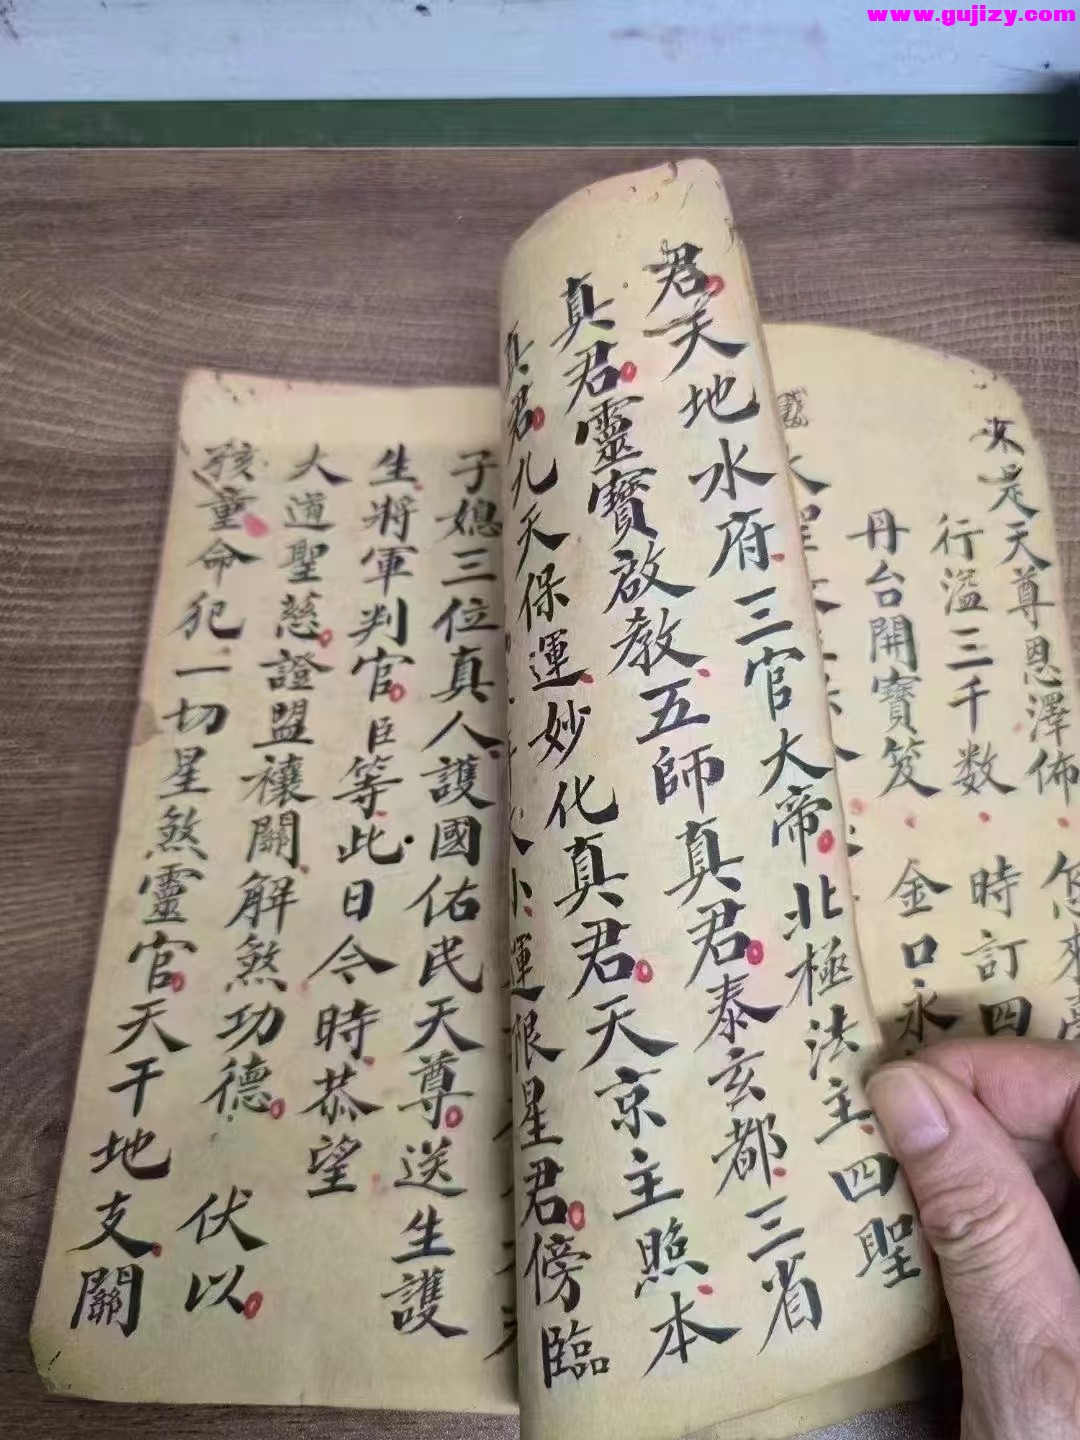 www.gujizy.com
來是天尊恩澤佈 
行滿三千数 時訂四
丹台開寶笈 金口永
君天地水府三官大帝北極法主四聖
真君靈寶啟教五師真君泰玄都三省
真君九天保運妙化真君天京主照本
小運限星君傍臨
子媳三位真人護國佑民天尊送生護
生將軍判官臣等此日今時恭望
大道聖慈證盟禳關解煞功德 伏以
孩童命犯一切星煞靈官天干地支關